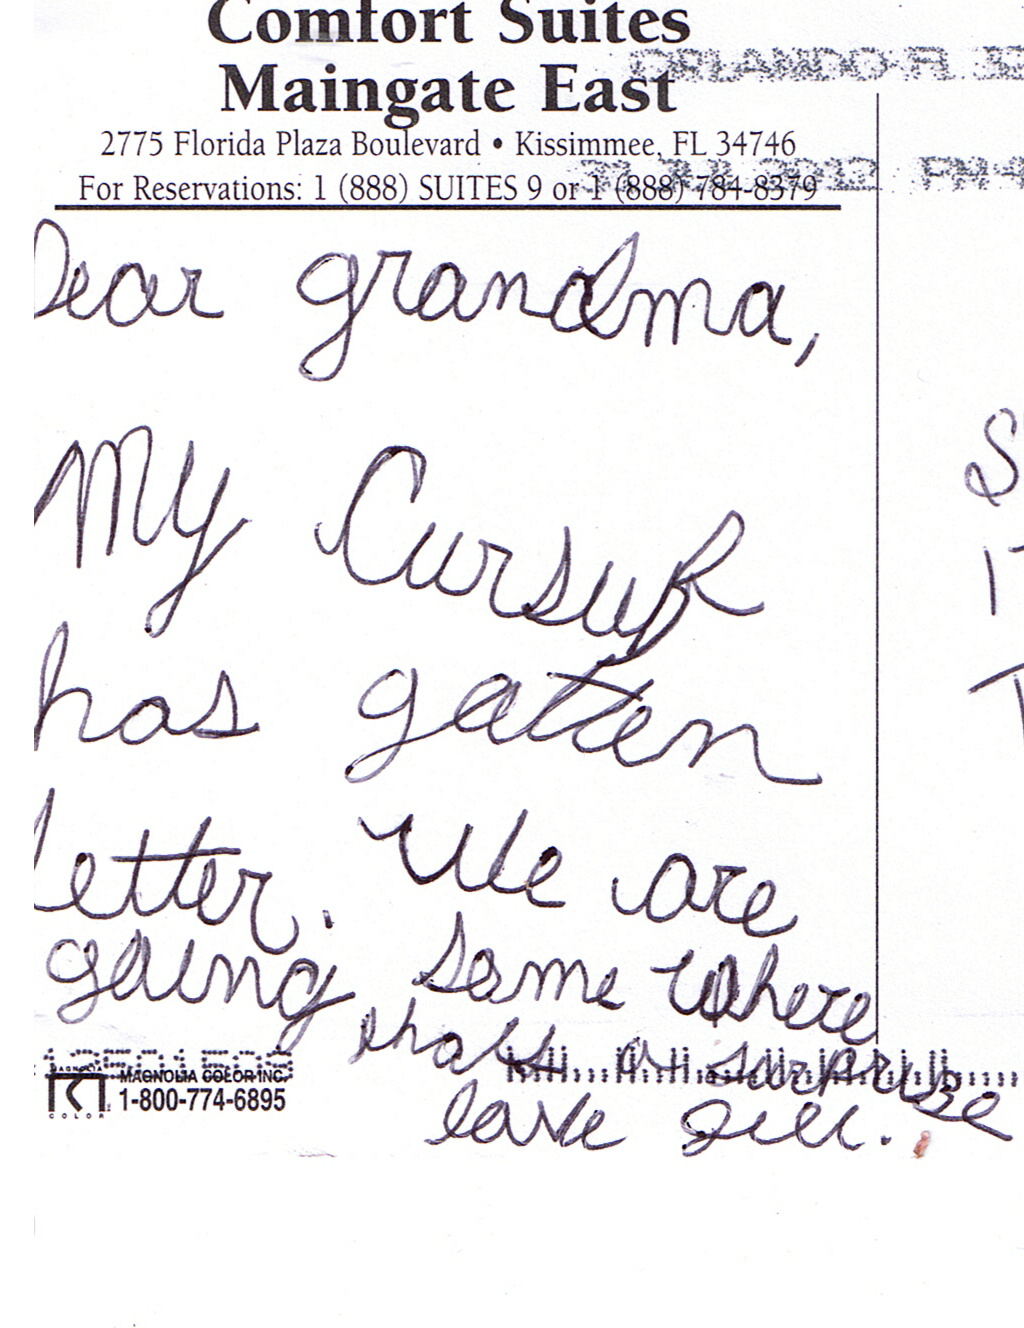 Comfort Suites
Maingate East
ORLANDO FL
2775 Florida Plaza Boulevard • Kissimmee, FL 34746
2012 PM
For Reservations: 1 (888) SUITES 9 or 1 (888) 784-8379
Dear grandma,
My Cursuf
has gatten
letter. We are
going some where
that's a surprise
love Jill.
MAGNOLIA
MAGNOLIA COLOR INC.
COLOR
1-800-774-6895